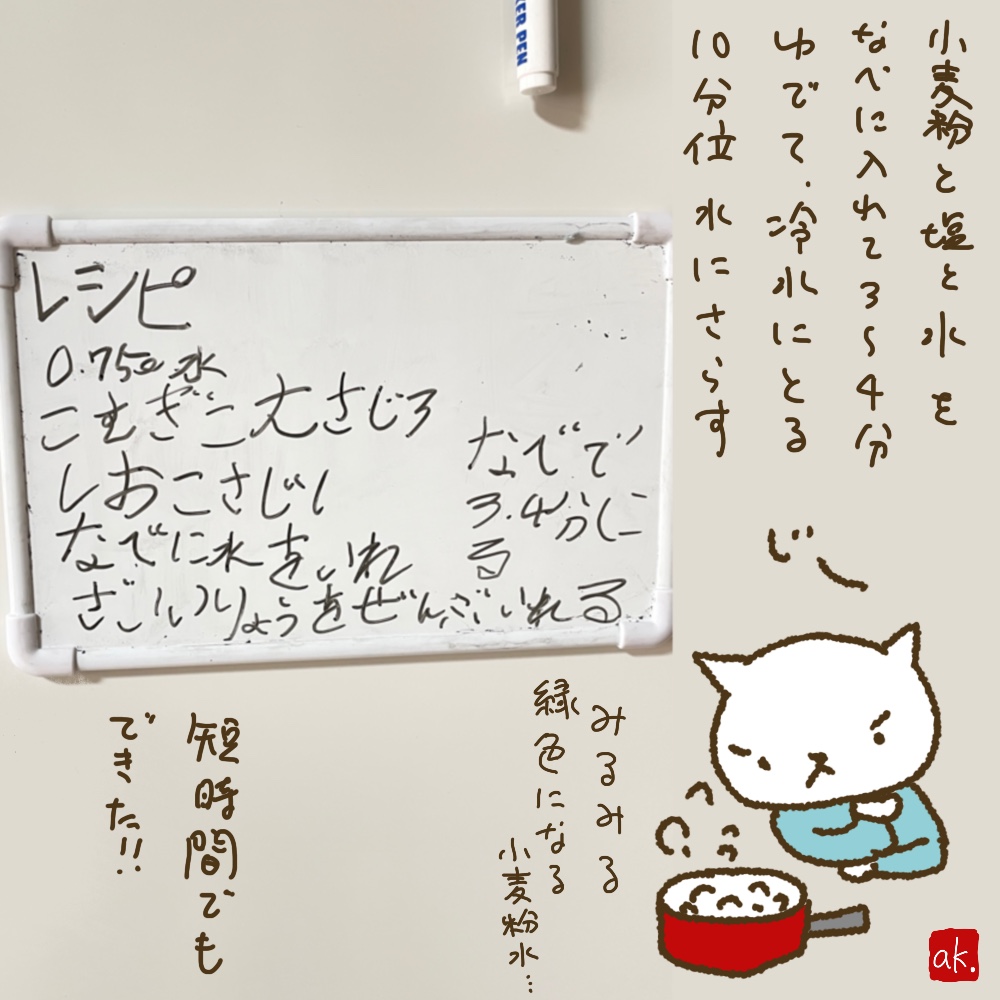 小麦粉と塩と水を
なべに入れて3~4分
ゆでて.冷水にとる
10分位 水にさらす
KER PEN
レシピ
0.75ℓ 水
こむぎこ大さじ3
しおこさじ1
なべに水をいれ
ざいりょうをぜんぶいれる
なべで
3.4分に
る
じー
みるみる
緑色になる
小麦粉水…
短時間でも
できた!!
ak.